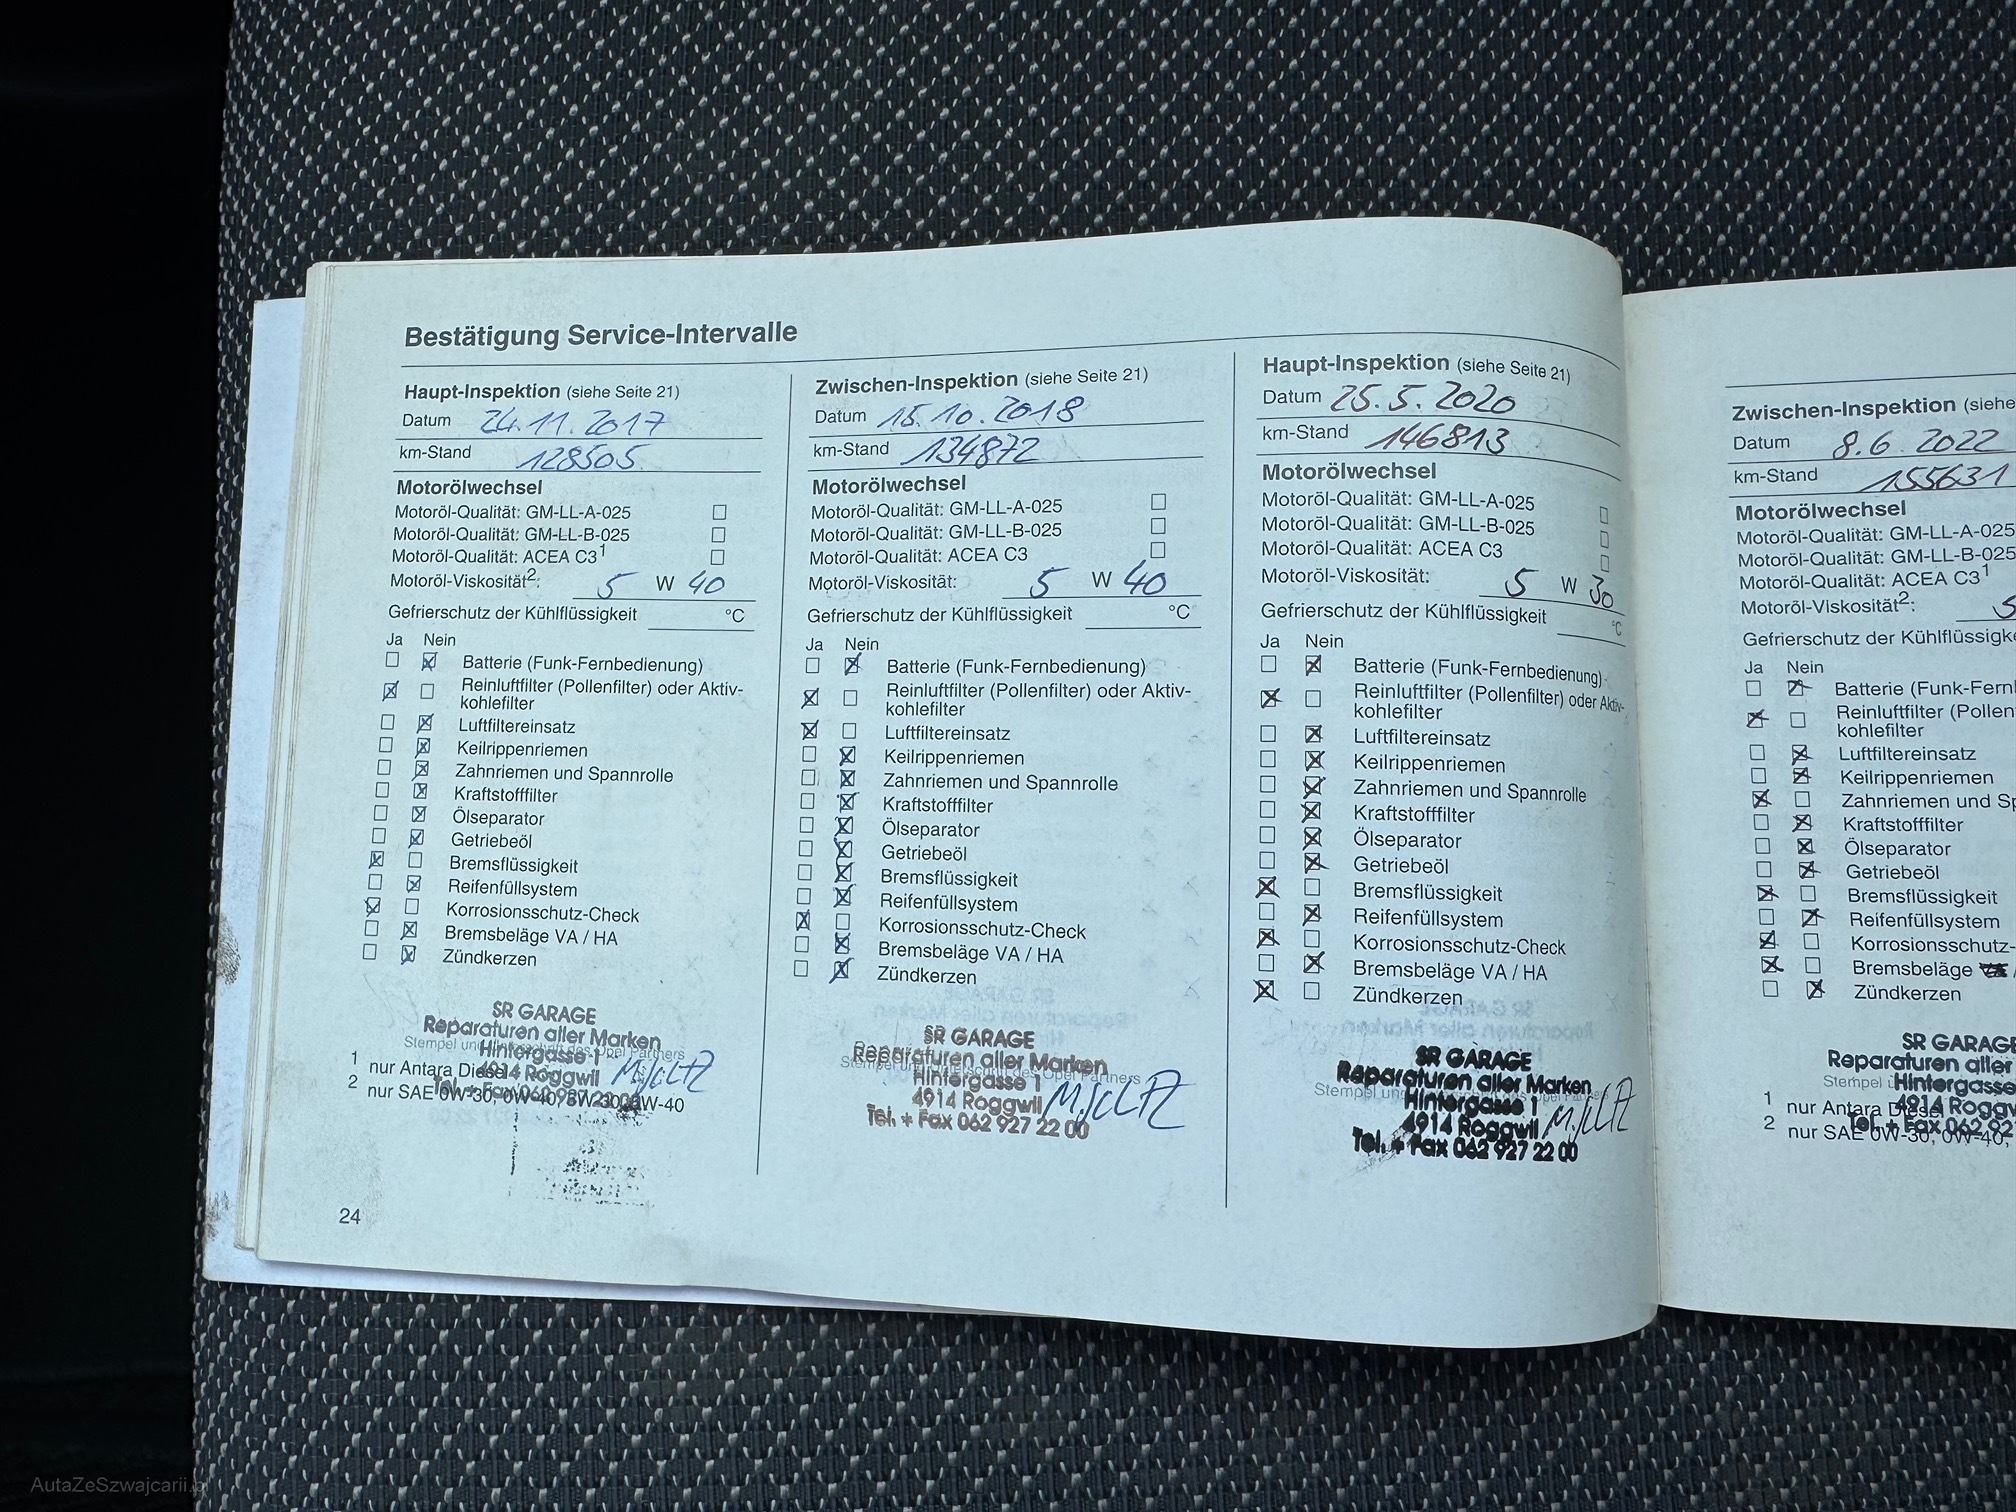 Bestätigung Service-Intervalle
Haupt-Inspektion (siehe Seite 21)
Datum 24.11.2017
km-Stand 128505
Motorölwechsel
Motoröl-Qualität: GM-LL-A-025
Motoröl-Qualität: GM-LL-B-025
Motoröl-Qualität: ACEA C3¹
Motoröl-Viskosität²: 5 W 40
Gefrierschutz der Kühlflüssigkeit °C
Ja Nein
Batterie (Funk-Fernbedienung)
Reinluftfilter (Pollenfilter) oder Aktiv-
kohlefilter
Luftfiltereinsatz
Keilrippenriemen
Zahnriemen und Spannrolle
Kraftstofffilter
Ölseparator
Getriebeöl
Bremsflüssigkeit
Reifenfüllsystem
Korrosionsschutz-Check
Bremsbeläge VA / HA
Zündkerzen
SR GARAGE
Reparaturen aller Marken
Stempel und Unterschrift des Opel Partners
Hintergasse 1
1 nur Antara Diesel
4914 Roggwil
Tel. + Fax 062 927 22 00
2 nur SAE 0W-30, 0W-40, 5W-30, 5W-40
24
Zwischen-Inspektion (siehe Seite 21)
Datum 15.10.2018
km-Stand 134872
Motorölwechsel
Motoröl-Qualität: GM-LL-A-025
Motoröl-Qualität: GM-LL-B-025
Motoröl-Qualität: ACEA C3
Motoröl-Viskosität: 5 W 40
Gefrierschutz der Kühlflüssigkeit °C
Ja Nein
Batterie (Funk-Fernbedienung)
Reinluftfilter (Pollenfilter) oder Aktiv-
kohlefilter
Luftfiltereinsatz
Keilrippenriemen
Zahnriemen und Spannrolle
Kraftstofffilter
Ölseparator
Getriebeöl
Bremsflüssigkeit
Reifenfüllsystem
Korrosionsschutz-Check
Bremsbeläge VA / HA
Zündkerzen
SR GARAGE
Reparaturen aller Marken
Stempel und Unterschrift des Opel Partners
Hintergasse 1
4914 Roggwil
Tel. + Fax 062 927 22 00
Haupt-Inspektion (siehe Seite 21)
Datum 25.5.2020
km-Stand 146813
Motorölwechsel
Motoröl-Qualität: GM-LL-A-025
Motoröl-Qualität: GM-LL-B-025
Motoröl-Qualität: ACEA C3
Motoröl-Viskosität: 5 W 30
Gefrierschutz der Kühlflüssigkeit °C
Ja Nein
Batterie (Funk-Fernbedienung)
Reinluftfilter (Pollenfilter) oder Aktiv-
kohlefilter
Luftfiltereinsatz
Keilrippenriemen
Zahnriemen und Spannrolle
Kraftstofffilter
Ölseparator
Getriebeöl
Bremsflüssigkeit
Reifenfüllsystem
Korrosionsschutz-Check
Bremsbeläge VA / HA
Zündkerzen
SR GARAGE
Reparaturen aller Marken
Stempel des Opel
Hintergasse 1
4914 Roggwil
Tel. + Fax 062 927 22 00
Zwischen-Inspektion (siehe
Datum 8.6.2022
km-Stand 155631
Motorölwechsel
Motoröl-Qualität: GM-LL-A-025
Motoröl-Qualität: GM-LL-B-025
Motoröl-Qualität: ACEA C3¹
Motoröl-Viskosität²: 5
Gefrierschutz der Kühlflüssigke
Ja Nein
Batterie (Funk-Fern
Reinluftfilter (Pollen
kohlefilter
Luftfiltereinsatz
Keilrippenriemen
Zahnriemen und Sp
Kraftstofffilter
Ölseparator
Getriebeöl
Bremsflüssigkeit
Reifenfüllsystem
Korrosionsschutz-
Bremsbeläge
Zündkerzen
SR GARAGE
Reparaturen aller
Stempel
Hintergasse
1 nur Antara Diesel
4914 Roggw
Tel. + Fax 062 92
2 nur SAE 0W-30, 0W-40,
AutaZeSzwajcarii.pl